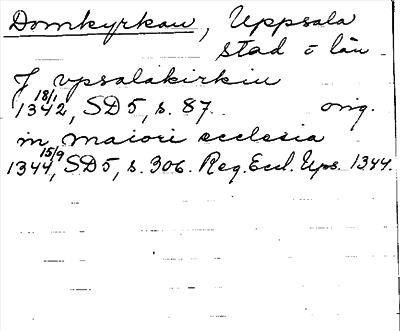 Domkyrkan, Uppsala
stad o län
J vpsalakirkiu
18/1
1342, SD5, s. 87. orig.
in maiori ecclesia
15/9
1344, SD5, s. 306. Reg. Eccl. Ups. 1344.